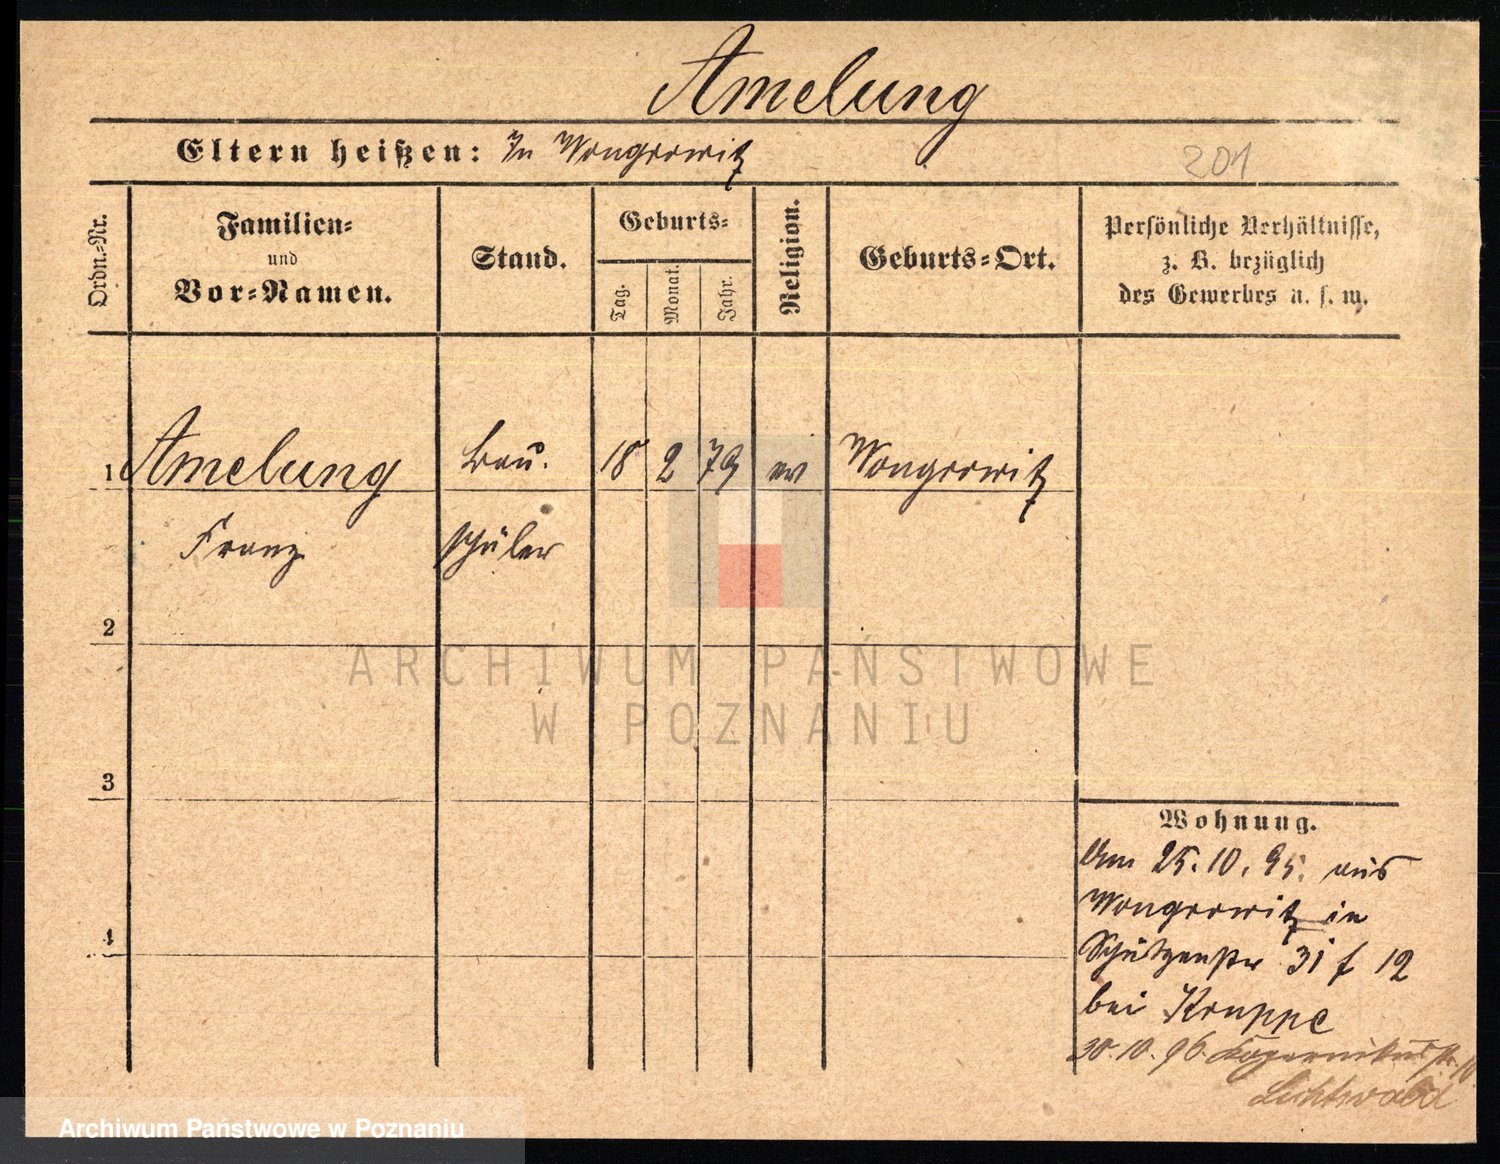 Amelung
Eltern heißen: In Wongrowitz
201
Ordn.=Nr.
Familien=
und
Vor=Namen.
Stand.
Geburts=
Tag.
Monat.
Jahr.
Religion.
Geburts=Ort.
Persönliche Verhältnisse,
z. B. bezüglich
des Gewerbes u. s. w.
1 Amelung Bau. 18 2 79 ev Wongrowitz
Franz schüler
2
ARCHIWUM PAŃSTWOWE
W POZNANIU
3
4
Wohnung.
Am 25. 10. 95. aus
Wongrowitz in
Schützenstr 31 f 12
bei Kruppe
30. 10. 96. Kopernikusstr. 10
Lichtwald
Archiwum Państwowe w Poznaniu